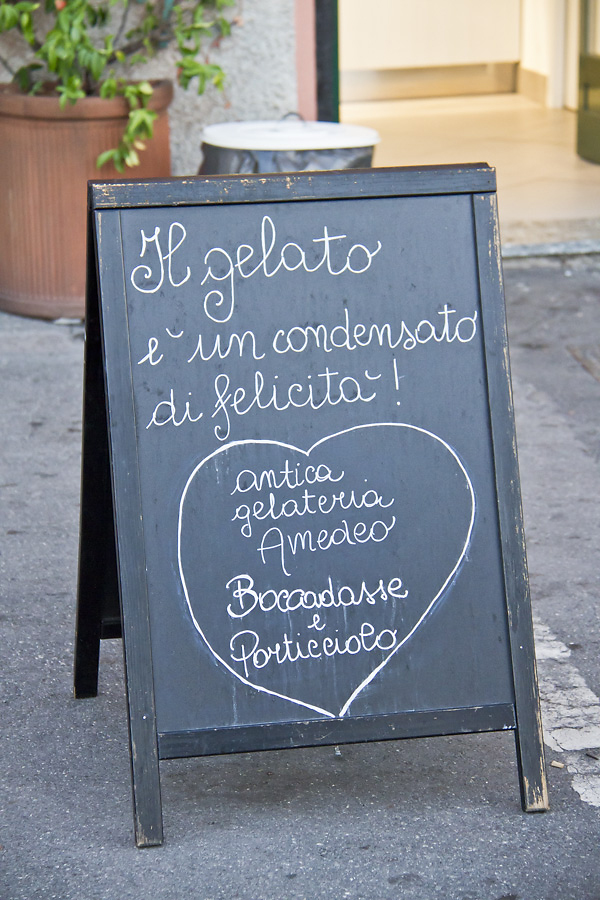 Il gelato
è un condensato
di felicità!
antica
gelateria
Amedeo
Boccadasse
e
Porticciolo